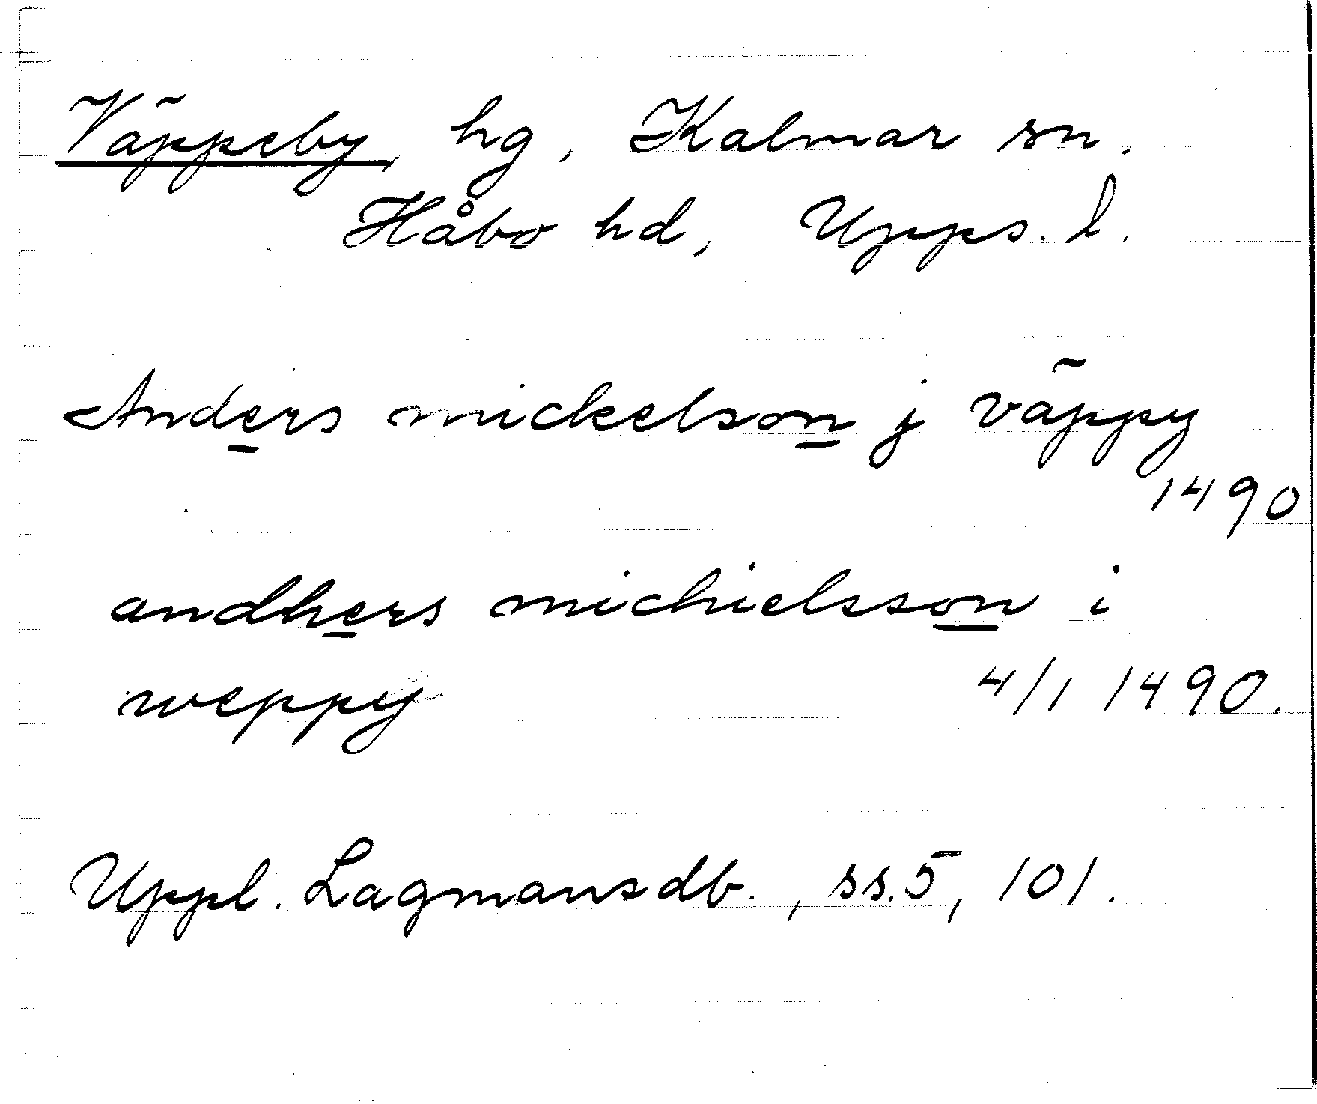 Väppeby, hg, Kalmar sn.
Håbo hd, Upps. l.
Anders mickelson j väppy
1490
andhers michielsson i
weppy 4/1 1490.
Uppl. Lagmansdb., ss.5, 101.